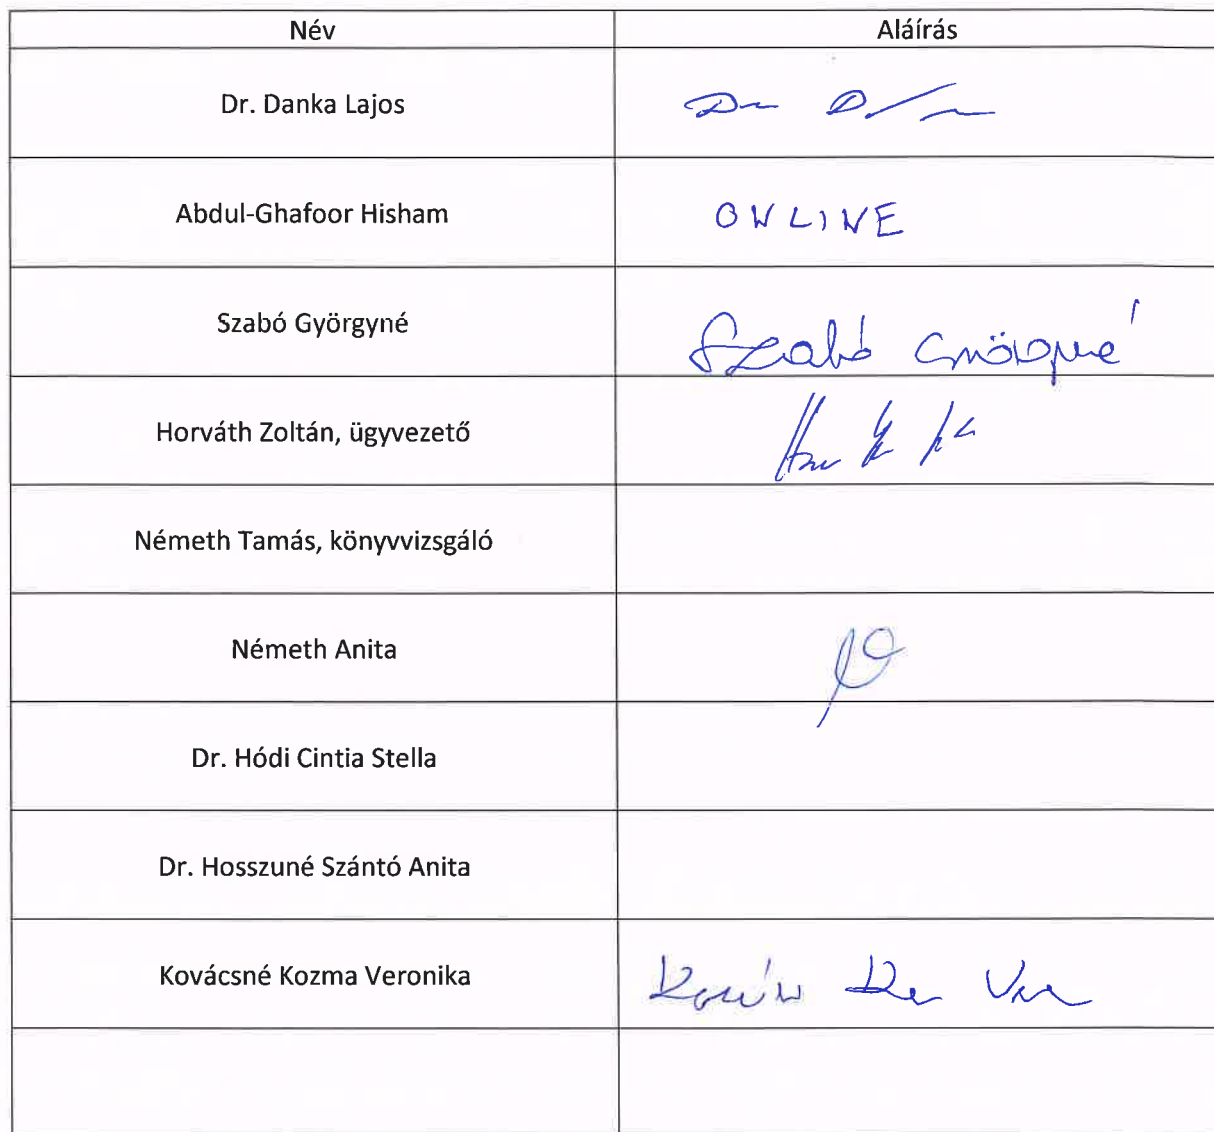 Név Aláírás
Dr. Danka Lajos
Abdul-Ghafoor Hisham ONLINE
Szabó Györgyné Szabó Györgyné
Horváth Zoltán, ügyvezető
Németh Tamás, könyvvizsgáló
Németh Anita
Dr. Hódi Cintia Stella
Dr. Hosszuné Szántó Anita
Kovácsné Kozma Veronika